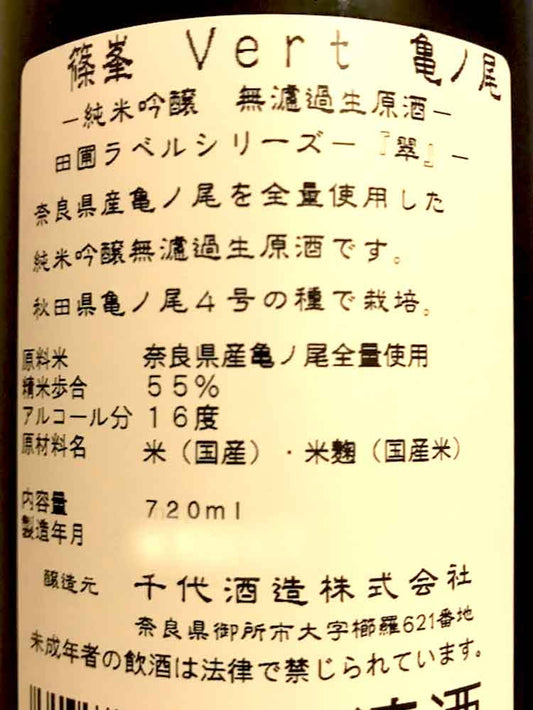 篠峯 Vert 亀ノ尾
－純米吟醸 無濾過生原酒－
田圃ラベルシリーズ－『翠』－
奈良県産亀ノ尾を全量使用した
純米吟醸無濾過生原酒です。
秋田県亀ノ尾４号の種で栽培。
原料米 奈良県産亀ノ尾全量使用
精米歩合 ５５％
アルコール分 １６度
原材料名 米（国産）・米麹（国産米）
内容量 ７２０ｍｌ
製造年月
醸造元 千代酒造株式会社
奈良県御所市大字櫛羅621番地
未成年者の飲酒は法律で禁じられています。
酒